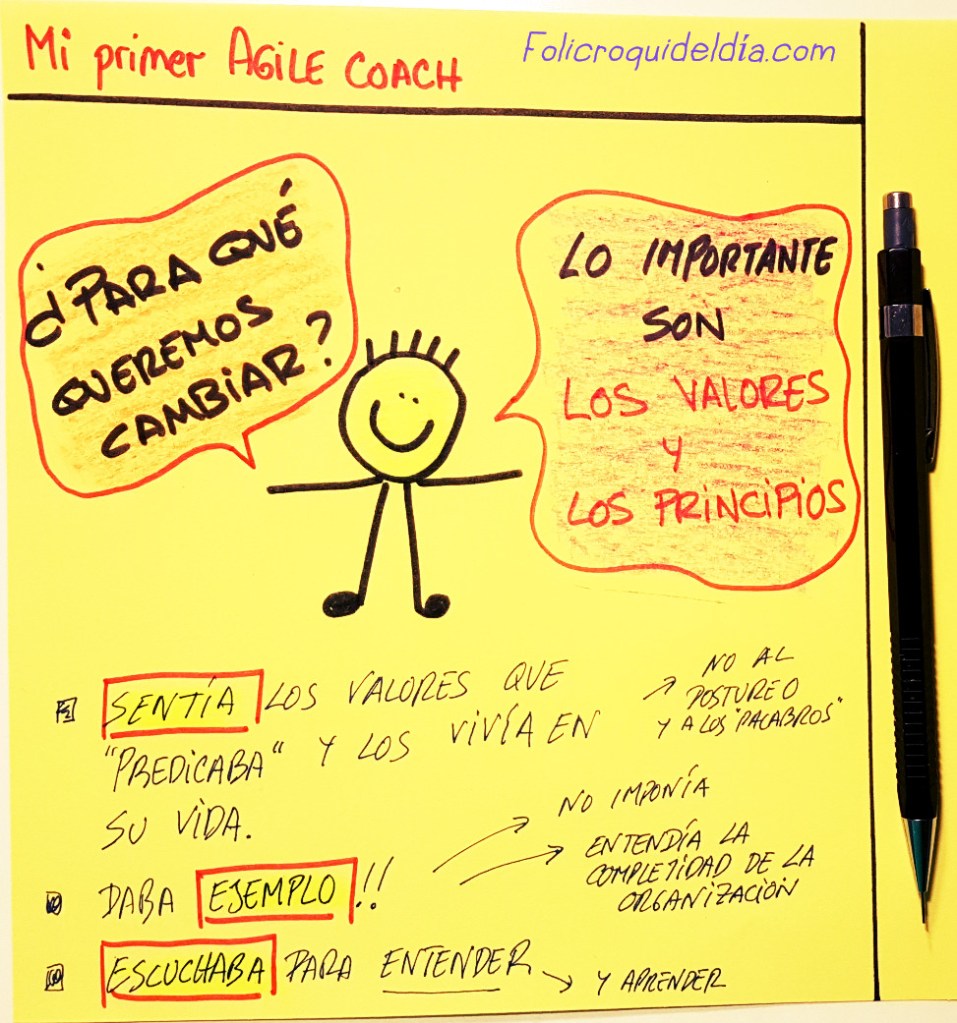 Mi primer AGiLE COACH
Folicroquideldía.com
¿PARA QUÉ
QUEREMOS
CAMBiAR?
LO IMPORTANTE
SON
LOS VALORES
Y
LOS PRINCIPIOS
SENTÍA LOS VALORES QUE
"PREDICABA" Y LOS VIVÍA EN
SU VIDA.
NO AL
POSTUREO
Y A LOS "PALABROS"
DABA EJEMPLO!!
NO IMPONÍA
ENTENDÍA LA
COMPLEJIDAD DE LA
ORGANIZACIÓN
ESCUCHABA PARA ENTENDER
Y APRENDER